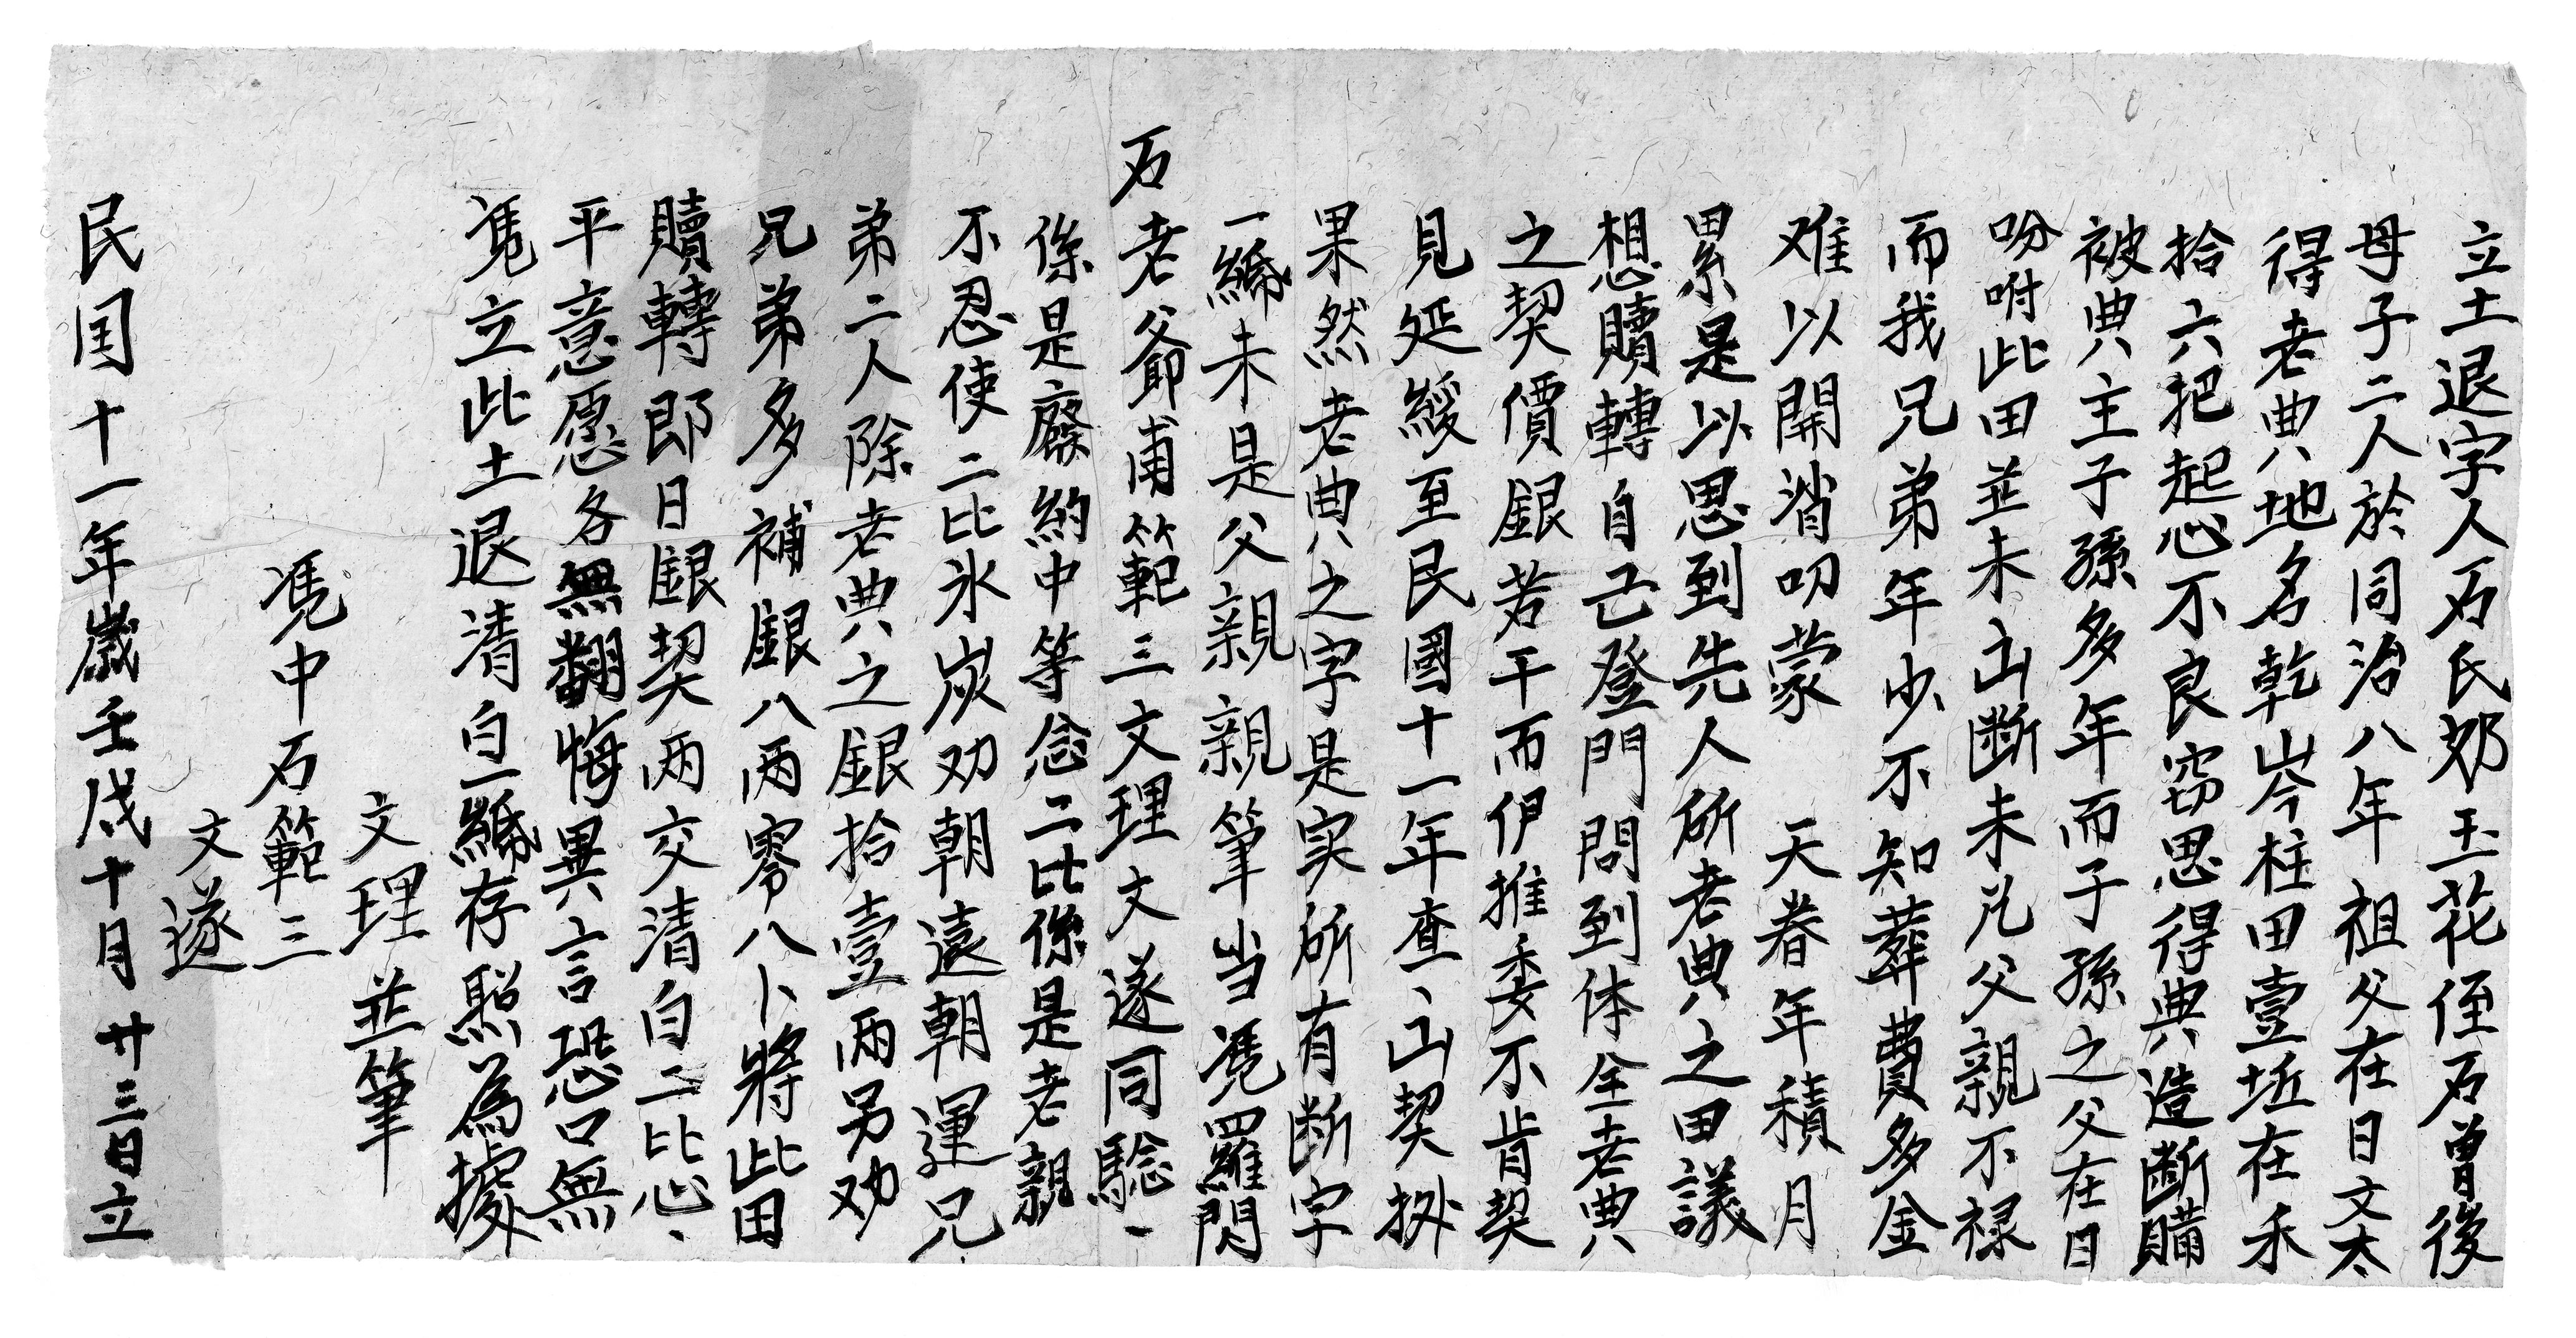 立土退字人石氏奶玉花侄石曾後
母子二人於同治八年祖父在日文太
得老典地名乾山岑柱田壹坵在禾
拾六把起心不良窃思得典造断購
被典主子孫多年而子孫之父在日
吩咐此田並未山断未兑父親不禄
而我兄弟年少不知葬費多金
难以開消叨蒙 天眷年積月
累是以思到先人所老典之田議
想贖轉自己登門問到体全老典
之契價銀若干而伊推委不肯契
見延緩至民國十一年查山契拠
果然老典之字是実所有断字
一緜未是父親親筆当凴羅閅
石老爺甫範三文理文遂同驗一
係是廢約中等念二比係是老親
不忍使二比氷炭劝朝遠朝運兄
弟二人除老典之銀拾壹两另劝
兄弟多補銀八两零八卜將此田
贖轉即日銀契两交清白二比心、
平意愿各無翻悔異言恐口無
凴立此土退清白一緜存照為據
文理並筆
凴中石範三
文遂
民囯十一年歲壬戌十月廿三日立